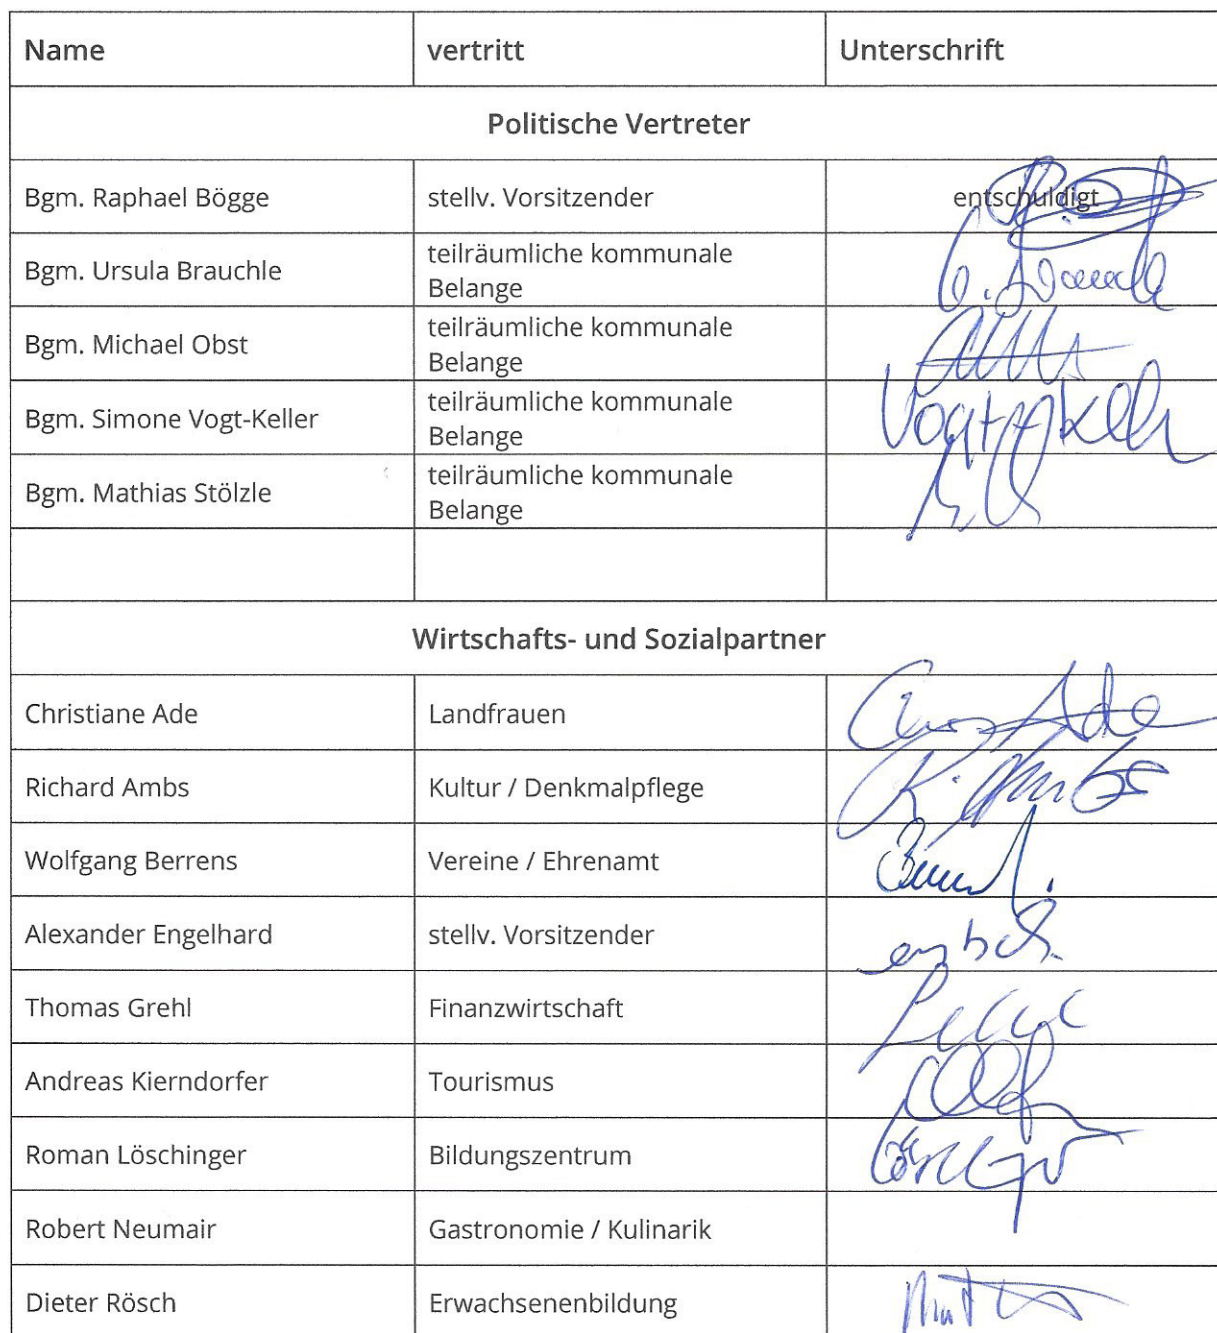 Name vertritt Unterschrift
Politische Vertreter
Bgm. Raphael Bögge stellv. Vorsitzender entschuldigt
Bgm. Ursula Brauchle teilräumliche kommunale
Belange
Bgm. Michael Obst teilräumliche kommunale
Belange
Bgm. Simone Vogt-Keller teilräumliche kommunale
Belange
Bgm. Mathias Stölzle teilräumliche kommunale
Belange
Wirtschafts- und Sozialpartner
Christiane Ade Landfrauen Ade
Richard Ambs Kultur / Denkmalpflege R. Ambs
Wolfgang Berrens Vereine / Ehrenamt
Alexander Engelhard stellv. Vorsitzender
Thomas Grehl Finanzwirtschaft
Andreas Kierndorfer Tourismus
Roman Löschinger Bildungszentrum
Robert Neumair Gastronomie / Kulinarik
Dieter Rösch Erwachsenenbildung